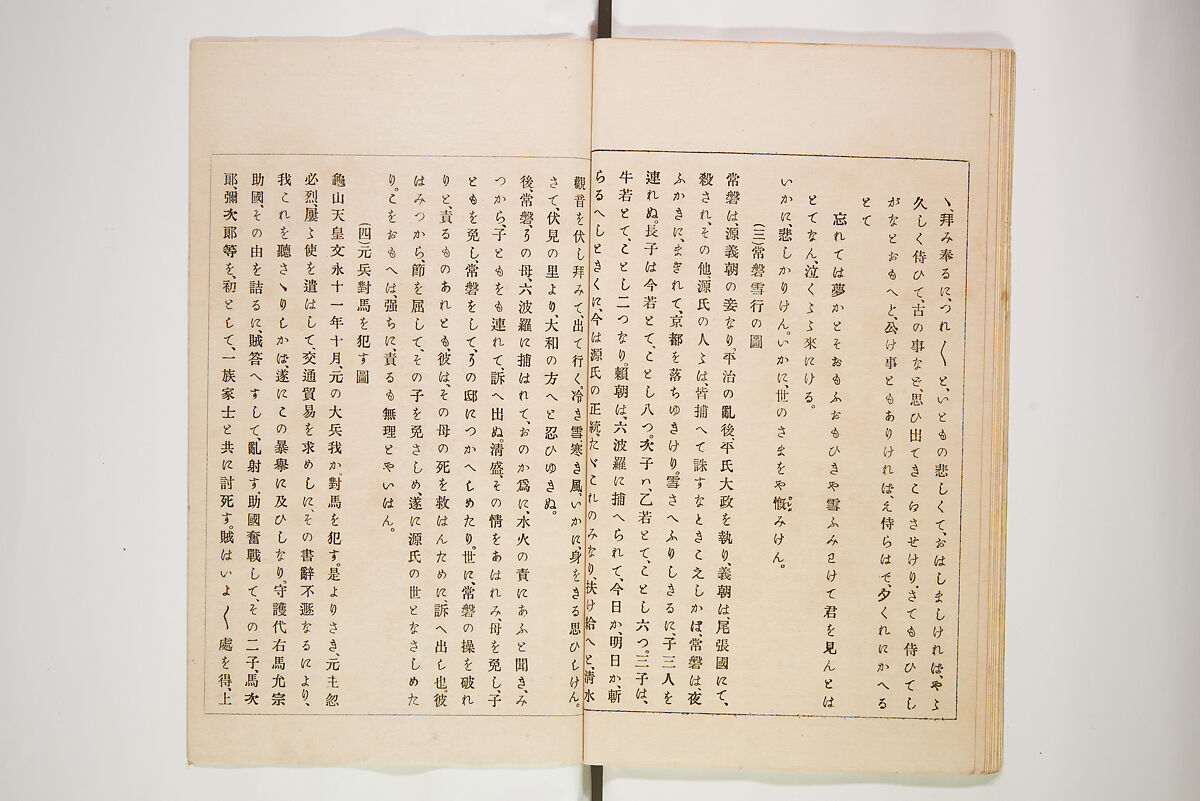 ヽ、拜み奉るに、つれ〱と、いともの悲しくて、おはしましければ、やゝ
久しく侍ひて、古の事など、思ひ出てきこ江させけり。さても侍ひてし
がなとおもへと、公け事ともありければ、え侍らはで、夕くれにかへる
とて
忘れては夢かとそおもふおもひきや雪ふみわけて君を見んとは
とてなん、泣くゝ來にける。
いかに悲しかりけん。いかに、世のさまをや慨みけん。
(三)常磐雪行の圖
常磐は源義朝の妾なり。平治の亂後、平氏大政を執り、義朝は、尾張國にて、
殺され、その他、源氏の人ゝは、皆捕へて誅すなときこえしかば、常磐は夜
ふかきに、まぎれて、京都を落ちゆきけり。雪さへふりしきるに、子三人を
連れぬ。長子は今若とて、ことし八つ。次子ハ、乙若とて、ことし六つ。三子は、
牛若とて、ことし二つなり。賴朝は、六波羅に捕へられて、今日か、明日か、斬
らるへしときくに、今は源氏の正統たゞこれのみなり、扶け給へと、淸水
觀音を伏し拜みて、出て行く、冷き雪寒き風、いかに、身をきる思ひしけん。
さて、伏見の里より、大和の方へと忍ひゆきぬ。
後、常磐、その母、六波羅に捕はれて、おのか爲に、水火の責にあふと聞き、み
つから、子ともをも連れて、訴へ出ぬ。淸盛、その情をあはれみ、母を免し、子
ともを免し、常磐をして、その邸につかへしめたり。世に、常磐の操を破れ
りと、責るものあれとも、彼は、その母の死を救はんために、訴へ出し也。彼
はみつから、節を屈して、その子を免さしめ、遂に源氏の世となさしめた
り。こをおもへは、强ちに、責るも無理とやいはん。
(四)元兵對馬を犯す圖
龜山天皇文永十一年十月、元の大兵我か對馬を犯す。是よりさき、元主忽
必烈、屢ゝ使を遣はして、交通貿易を求めしに、その書辭不遜なるにより、
我これを聽さゝりしかは、遂にこの暴擧に及ひしなり。守護代右馬允宗
助國、その由を詰るに、賊答へすして、亂射す。助國奮戰して、その二子、馬次
郞彌次郞等を、初として、一族家士と共に討死す。賊はいよ〱處を得、上